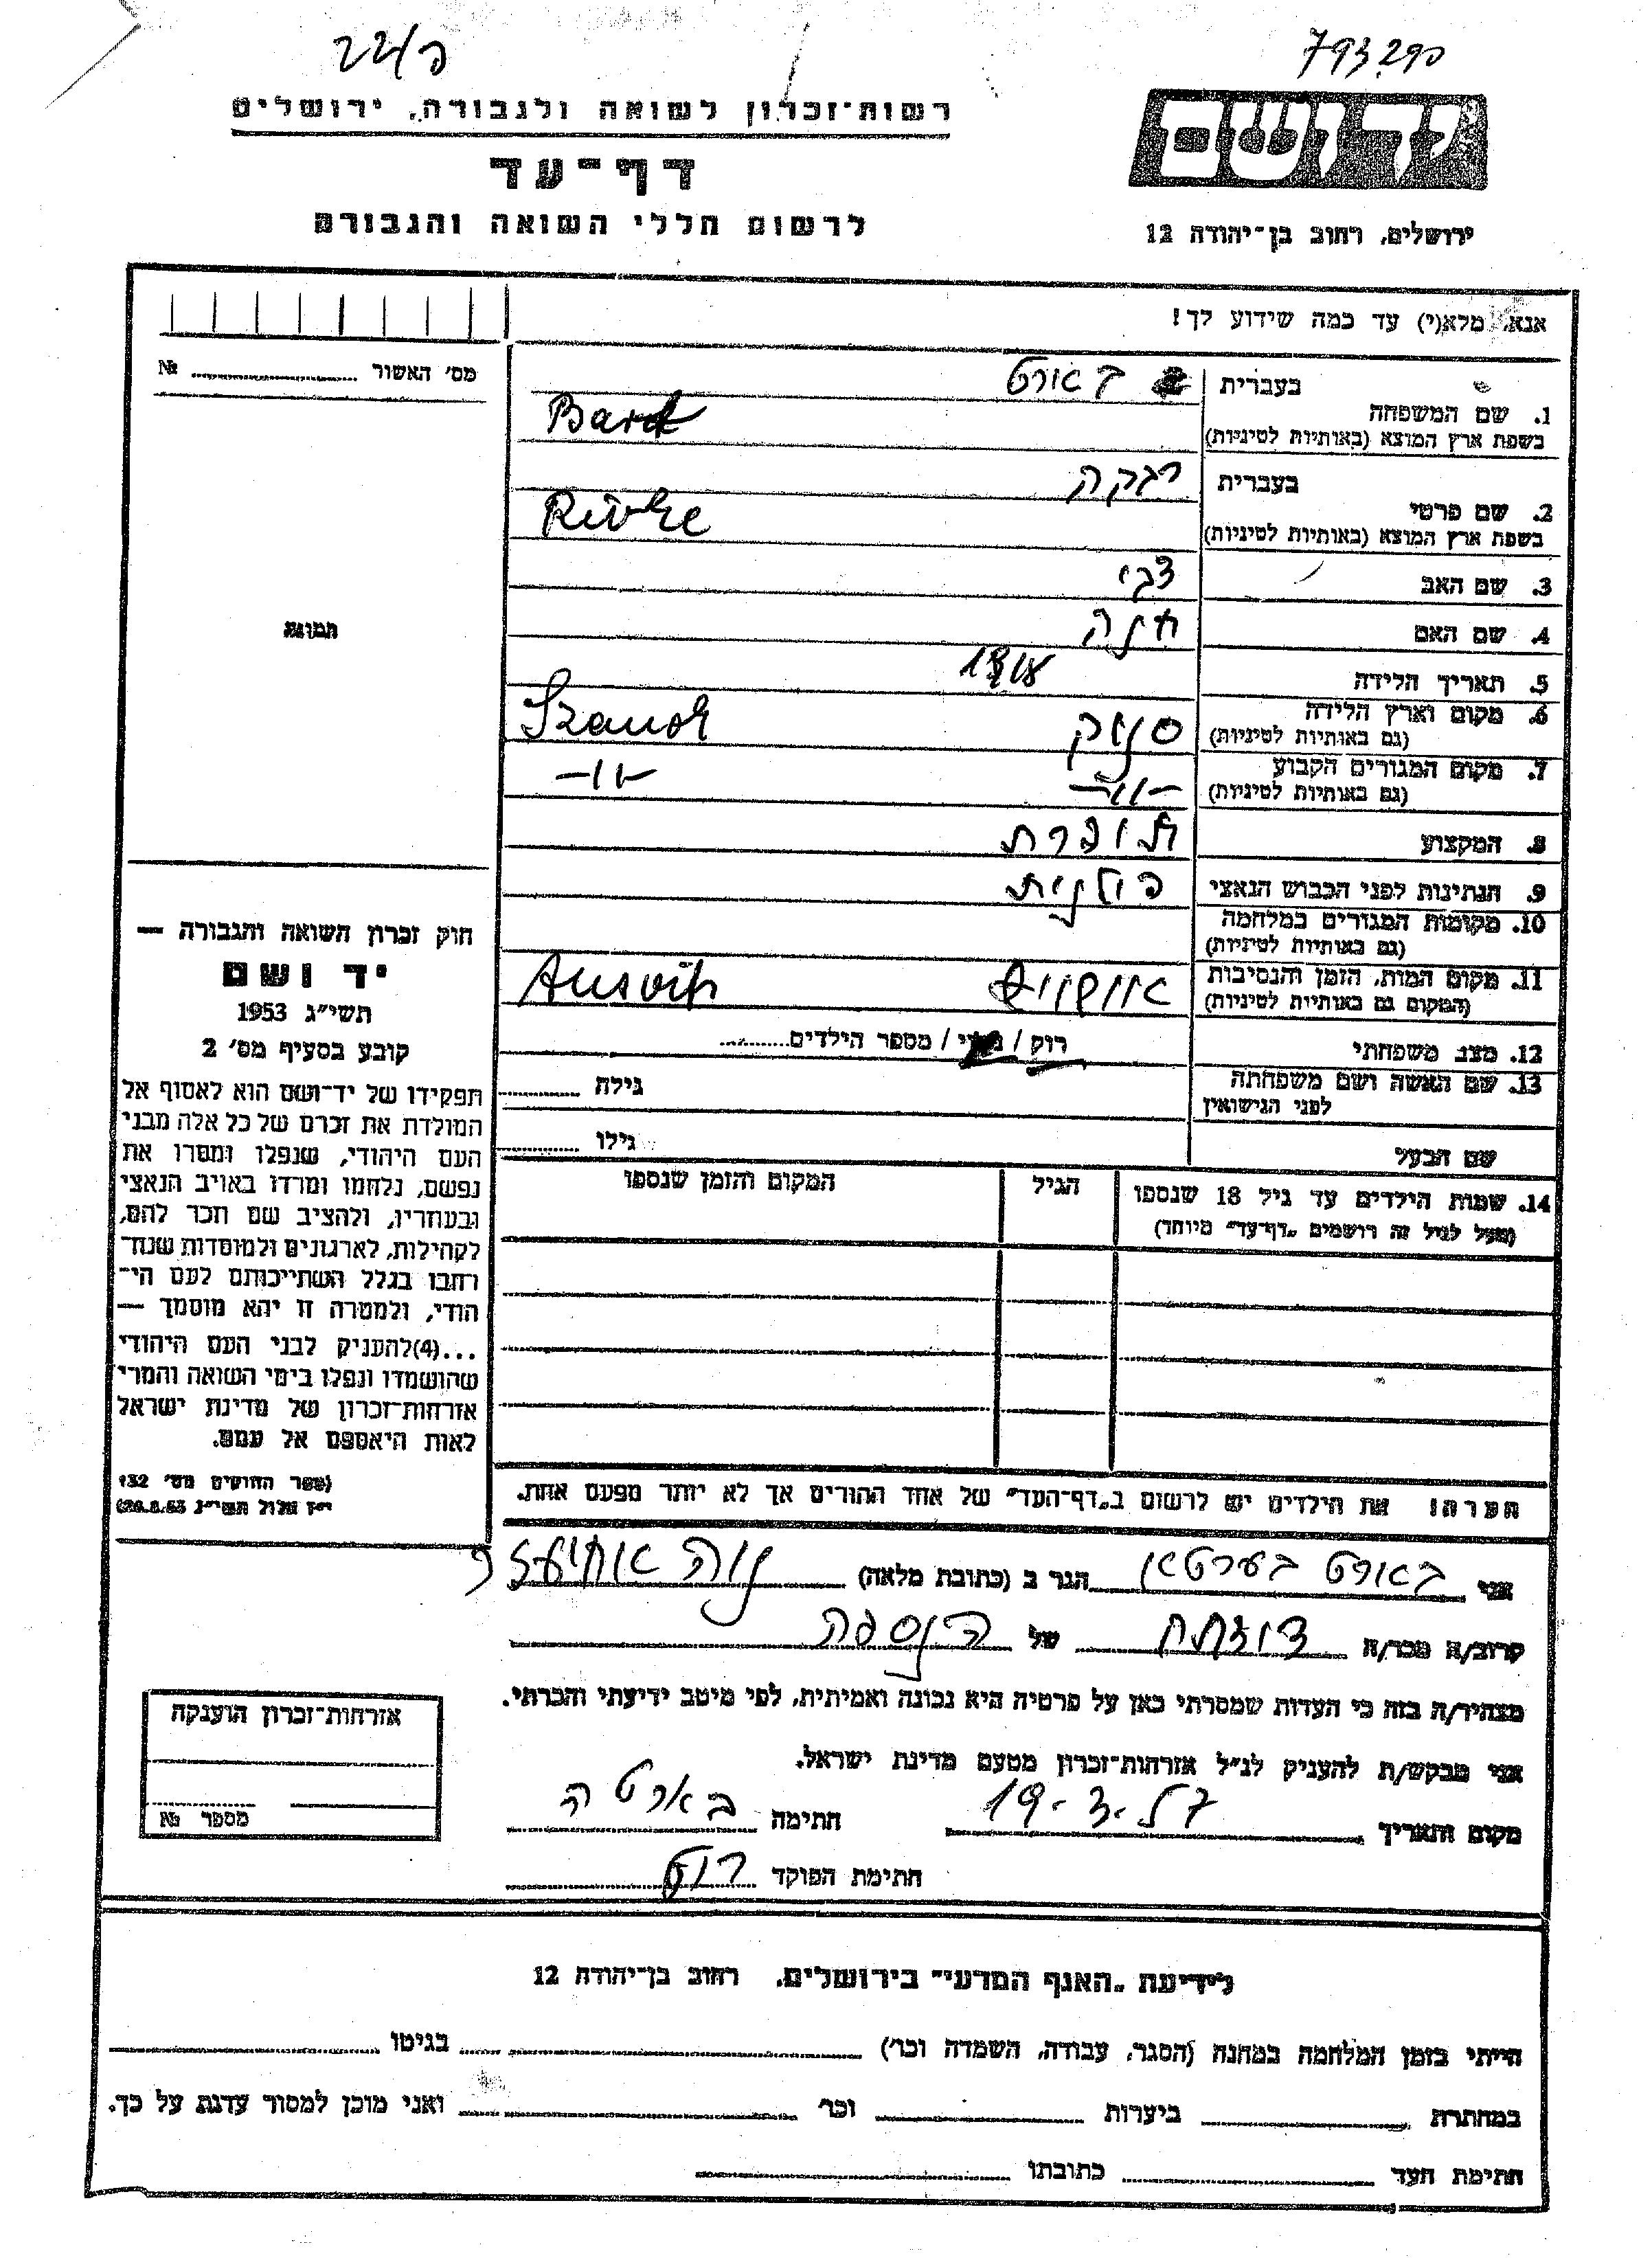 793292
רשות־זכרון לשואה ולגבורה, ירושלים
דף־עד
לרשום חללי השואה והגבורה
ירושלים, רחוב בן־יהודה 12
אנא, מלא(י) עד כמה שידוע לך!
מס׳ האשור № 
בעברית
1. שם המשפחה
בשפת ארץ המוצא (באותיות לטיניות)
באורט
Bard
בעברית
2. שם פרטי
בשפת ארץ המוצא (באותיות לטיניות)
רבקה
Rivke
3. שם האב צבי
4. שם האם חנה
5. תאריך הלידה 1918
6. מקום וארץ הלידה
(גם באותיות לטיניות)
סנוק Szanok
7. מקום המגורים הקבוע
(גם באותיות לטיניות)
-״- -״-
8. המקצוע תופרת
9. הנתינות לפני הכבוש הנאצי פולנית
10. מקומות המגורים במלחמה
(גם באותיות לטיניות)
11. מקום המות, הזמן והנסיבות
(המקום גם באותיות לטיניות)
אושויץ Ausvitz
12. מצב משפחתי רוק / נשוי / מספר הילדים
13. שם האשה ושם משפחתה
לפני הנישואין
גילה
שם הבעל גילו
14. שמות הילדים עד גיל 18 שנספו
(מעל לגיל זה רושמים „דף־עד״ מיוחד)
הגיל
המקום והזמן שנספו
הערה! את הילדים יש לרשום ב„דף־העד״ של אחד ההורים אך לא יותר מפעם אחת.
תמונה
חוק זכרון השואה והגבורה —
יד ושם
תשי״ג 1953
קובע בסעיף מס׳ 2
תפקידו של יד־ושם הוא לאסוף אל
המולדת את זכרם של כל אלה מבני
העם היהודי, שנפלו ומסרו את
נפשם, נלחמו ומרדו באויב הנאצי
ובעוזריו, ולהציב שם וזכר להם,
לקהילות, לארגונים ולמוסדות שנח־
רבו בגלל השתייכותם לעם הי־
הודי, ולמטרה זו יהא מוסמך —
...(4)להעניק לבני העם היהודי
שהושמדו ונפלו בימי השואה והמרי
אזרחות־זכרון של מדינת ישראל
לאות היאספם אל עמם.
(ספר החוקים מס׳ 132,
י״ז אלול תשי״ג 28.8.53)
אני באורט בערטא הגר ב (כתובת מלאה) נוה אחיעזר
קרוב/ה מכר/ה דודתה של הנספה
מצהיר/ה בזה כי העדות שמסרתי כאן על פרטיה היא נכונה ואמיתית, לפי מיטב ידיעתי והכרתי.
אני מבקש/ת להעניק לנ״ל אזרחות־זכרון מטעם מדינת ישראל.
מקום ותאריך 19.3.57 חתימה בארט ה
חתימת הפוקד
אזרחות־זכרון הוענקה
מספר №
לידיעת „האגף המדעי״ בירושלים, רחוב בן־יהודה 12
הייתי בזמן המלחמה במחנה (הסגר, עבודה, השמדה וכו׳) בגיטו
במחתרת ביערות וכו׳ ואני מוכן למסור עדות על כך.
חתימת העד כתובתו